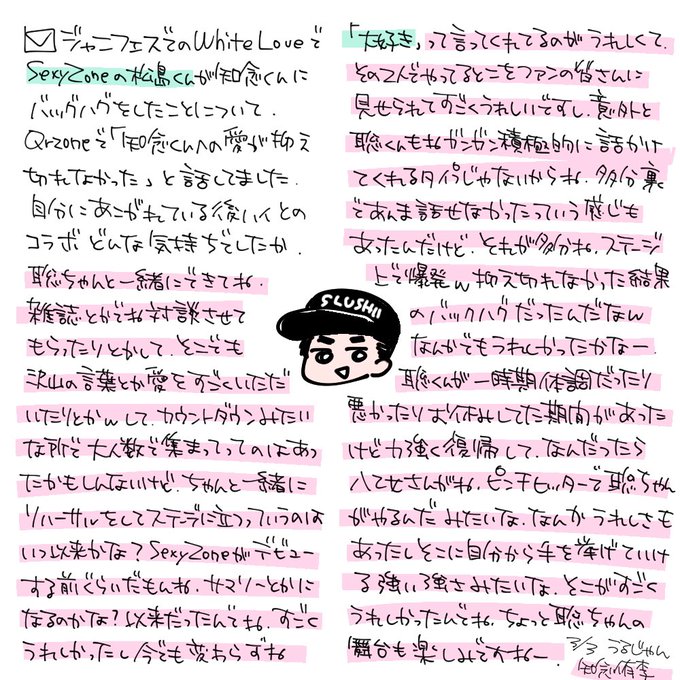 ジャニフェスでのWhite Loveで
SexyZoneの松島くんが知念くんに
バックハグをしたことについて.
Qrzoneで「知念くんへの愛が抑え
切れなかった」と話してました.
自分にあこがれている後ハイとの
コラボどんな気持ちでしたか.
聡ちゃんと一緒にできてね.
雑誌とかでね対談させて
もらったりとかして.そこでも
沢山の言葉とか愛をすごくいただ
いたりとかして.カウントダウンみたい
な所で大人数で集まってってのはあっ
たかもしんないけど.ちゃんと一緒に
リハーサルをしてステージに立つっていうのは
いつ以来かな?SexyZoneがデビュー
する前ぐらいだもんね.サマリーとかに
なるのかな?以来だったんでね.すごく
うれしかったし今でも変わらずね
「大好き」って言ってくれてるのがうれしくて.
その2人でやってるとこをファンの皆さんに
見せられてすごくうれしいですし.意外と
聡くんもねガンガン積極的に話かけ
てくれるタイプじゃないからね.多分裏
であんま話せなかったっていう感じも
あったんだけど.それが多分ね.ステージ
上で爆発し抑え切れなかった結果
SLUSHII
のバックハグだったんだなん
なんかでもうれしかったかなー.
聡くんが一時期体調だったり
悪かったりお休みしてた期間があった
けど力強く復帰して.なんだったら
八乙女さんがね.ピンチヒッターで聡ちゃん
がやるんだみたいな.なんかうれしさも
あったしそこに自分から手を挙げていけ
る強い強さみたいな.そこがすごく
うれしかったんでね.ちょっと聡ちゃんの
舞台も楽しみですねー.
3/3 うるじゃん
知念侑李